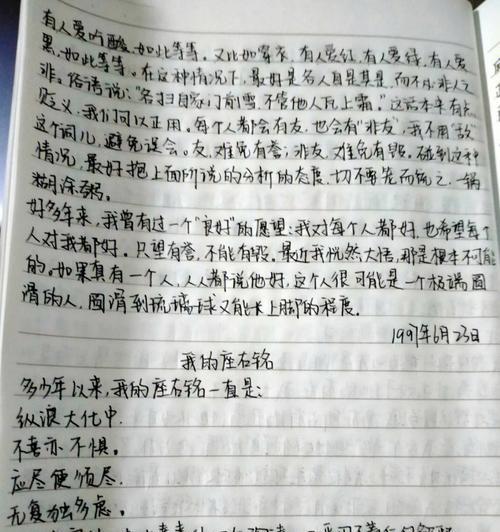 有人爱吃酸,如此等等。又比如穿衣,有人爱红,有人爱绿,有人爱
黑,如此等等。在这种情况下,最好是各人自是其是,而不必非人之
非。俗语说:“各扫自家门前雪,不管他人瓦上霜。”这话本来有点
贬义,我们可以正用。每个人都会有友,也会有“非友”,我不用“敌
这个词儿,避免误会。友,难免有誉;非友,难免有毁。碰到这种
情况,最好抱上面所说的分析的态度,切不要笼而统之,一锅
糊涂粥。
好多年来,我曾有过一个“良好”的愿望:我对每个人都好,也希望每个
人对我都好。只望有誉,不能有毁。最近我恍然大悟,那是根本不可能
的。如果真有一个人,人人都说他好,这个人很可能是一个极端圆
滑的人,圆滑到琉璃球又能长上脚的程度。
1997年6月23日
我的座右铭
多少年以来,我的座右铭一直是:
纵浪大化中,
不喜亦不惧。
应尽便须尽,
无复独多虑。